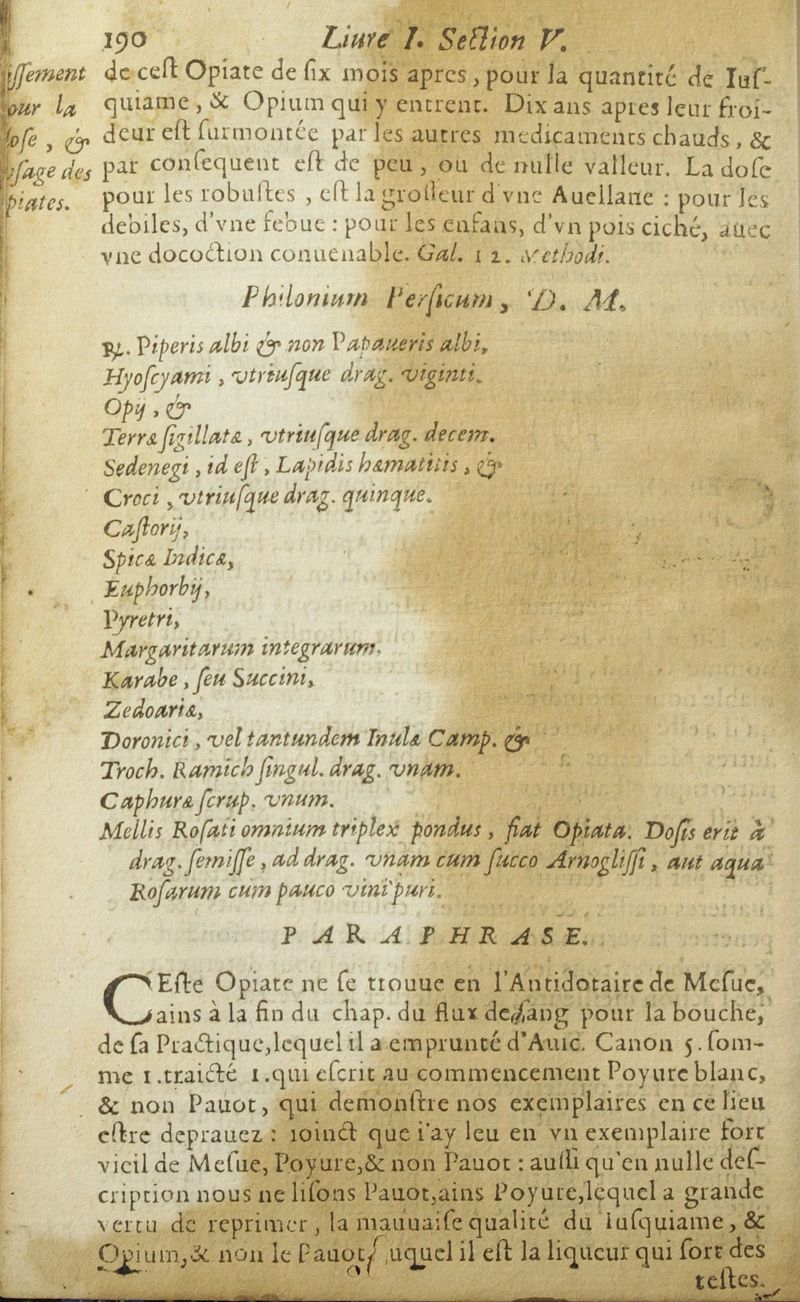 190 Liure I. Section V.
issement
our la
dose, &
vsage des
piates.
de cest Opiate de six mois apres, pour la quantité de Ius-
quiame, & Opium qui y entrent. Dix ans apres leur froi-
deur est surmontée par les autres medicaments chauds, &
par consequent est de peu, ou de nulle valleur. La dose
pour les robustes, est la grosseur d'vne Auellane : pour les
debiles, d'vne febue : pour les enfans, d'vn pois ciché, auec
vne decoction conuenable. Gal. 12. Methodi.
Philonium Persicum, D. M.
℞. Piperis albi & non Papaueris albi,
Hyoscyami, vtriusque drag. viginti.
Opij, &
Terræ sigillatæ, vtriusque drag. decem.
Sedenegi, id est, Lapidis hæmatitis, &
Croci, vtriusque drag. quinque.
Castorij,
Spicæ Indicæ,
Euphorbij,
Pyretri,
Margaritarum integrarum,
Karabe, seu Succini,
Zedoariæ,
Doronici, vel tantundem Inulæ Camp. &
Troch. Ramich singul. drag. vnam.
Caphuræ scrup. vnum.
Mellis Rosati omnium triplex pondus, fiat Opiata. Dosis erit à
drag. semisse, ad drag. vnam cum succo Arnoglissi, aut aqua
Rosarum cum pauco vini puri.
PARAPHRASE.
CEste Opiate ne se trouue en l'Antidotaire de Mesue,
ains à la fin du chap. du flux de sang pour la bouche,
de sa Practique, lequel il a emprunté d'Auic. Canon 5. som-
me 1. traicté 1. qui escrit au commencement Poyure blanc,
& non Pauot, qui demonstre nos exemplaires en ce lieu
estre deprauez : ioinct que i'ay leu en vn exemplaire fort
vieil de Mesue, Poyure, & non Pauot : aussi qu'en nulle des-
cription nous ne lisons Pauot, ains Poyure, lequel a grande
vertu de reprimer, la mauuaise qualité du iusquiame, &
Opium, & non le Pauot, duquel il est la liqueur qui sort des
testes.